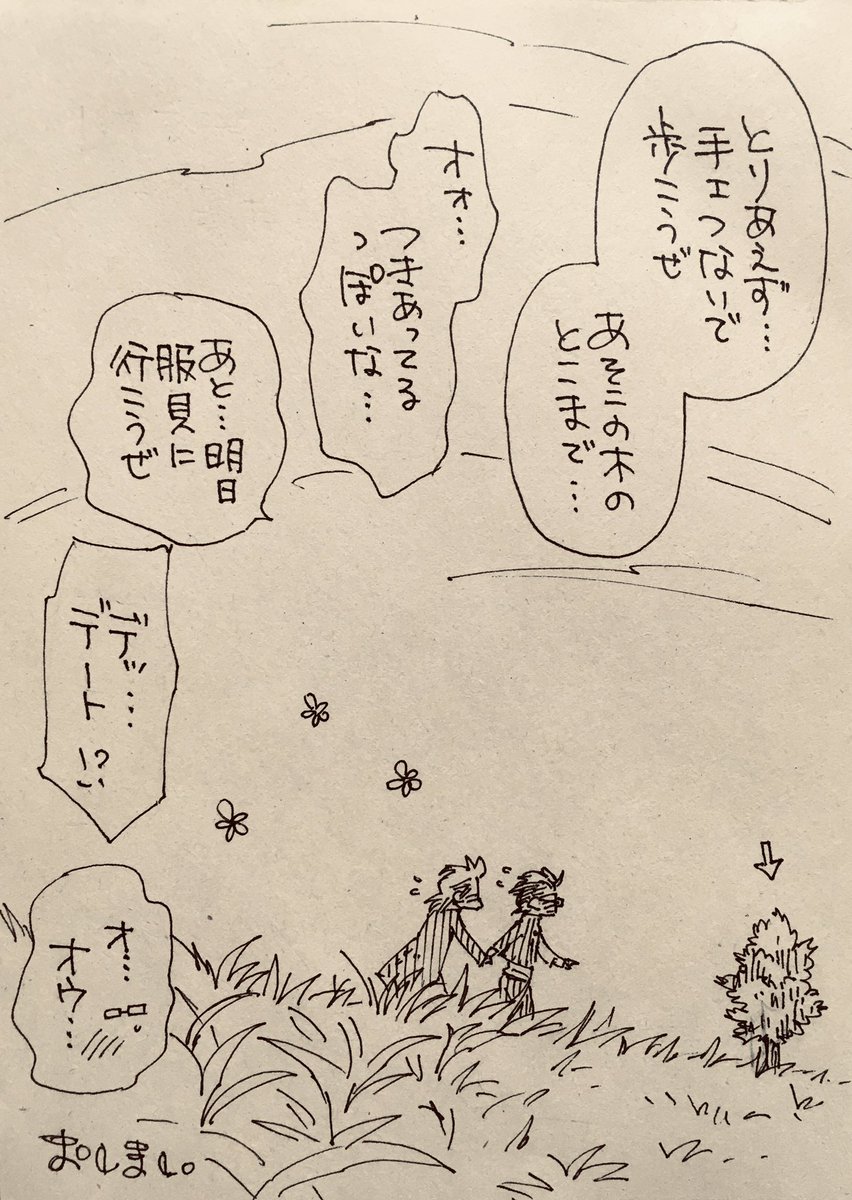 とりあえず…
手エつないで
歩こうぜ
あそこの木の
とこまで…
オオ…
つきあってる
っぽいな…
あと…明日
服見に
行こうぜ
デッ…
デート!?
オ…
オウ…
おしまい。